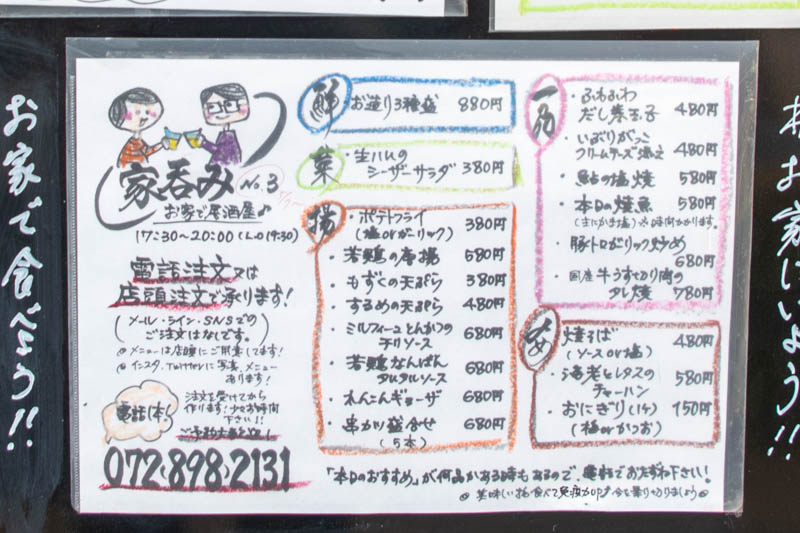 お家で食べよう!!
家呑み No.3
お家で居酒屋♪
17:30~20:00 (L.O 19:30)
電話注文又は
店頭注文で承ります!
(メール・ライン・SNSでの
ご注文はなしです。)
◎メニューは店頭にご用意してます!
◎インスタ、Twitterに写真、メニュー
あります!
電話は!
注文を受けてから
作ります!少々お時間
下さい!!
072-898-2131
鮮
お造り3種盛 880円
菜
・生ハムの
シーザーサラダ 380円
揚
・ポテトフライ
(塩orガーリック) 380円
・若鶏の唐揚 580円
・もずくの天ぷら 380円
・するめの天ぷら 480円
・ミルフィーユとんかつの
チリソース 680円
・若鶏なんばん
タルタルソース 680円
・れんこんギョーザ 680円
・串カツ盛合せ 680円
(5本)
一品
・ふわふわ
だし巻玉子 480円
・いぶりがっこ
クリームチーズ添え 480円
・鮎の塩焼 580円
・本日の焼魚 580円
(主にかま塩)※時間かかります。
・豚トロガーリック炒め
680円
・国産牛うす切り肉の
タレ焼 780円
〆
・焼そば
(ソースor塩) 480円
・海老とレタスの
チャーハン 580円
・おにぎり(1ケ) 150円
(梅orかつお)
「本日のおすすめ」が何品かある時もあるので、電話でおたずね下さい!
◎美味しい物食べて免疫力UP♪今を乗り切りましょう◎